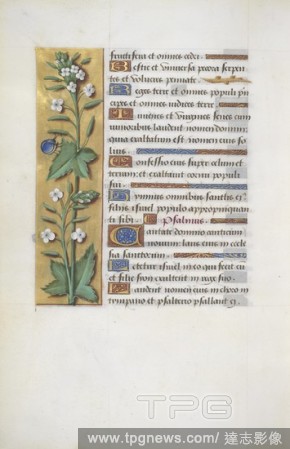 fructifera et omnes cedri.
Bestie et universa pecora serpen
tes et volucres pennate.
Reges terre et omnes populi prin
cipes et omnes iudices terre.
Iuvenes et virgines senes cum
iunioribus laudent nomen domini:
quia exaltatum est nomen eius so
lius.
Confessio eius super celum et
terram: et exaltavit cornu populi
sui.
Hymnus omnibus sanctis eius
filiis israel populo appropinquan
ti sibi. Psalmus.
Cantate domino canticum
novum: laus eius in eccle
sia sanctorum.
Letetur israel in eo qui fecit eum
et filie sion exultent in rege suo.
Laudent nomen eius in choro in
tympano et psalterio psallant ei.
TPG
www.tpgnews.com/ 達志影像